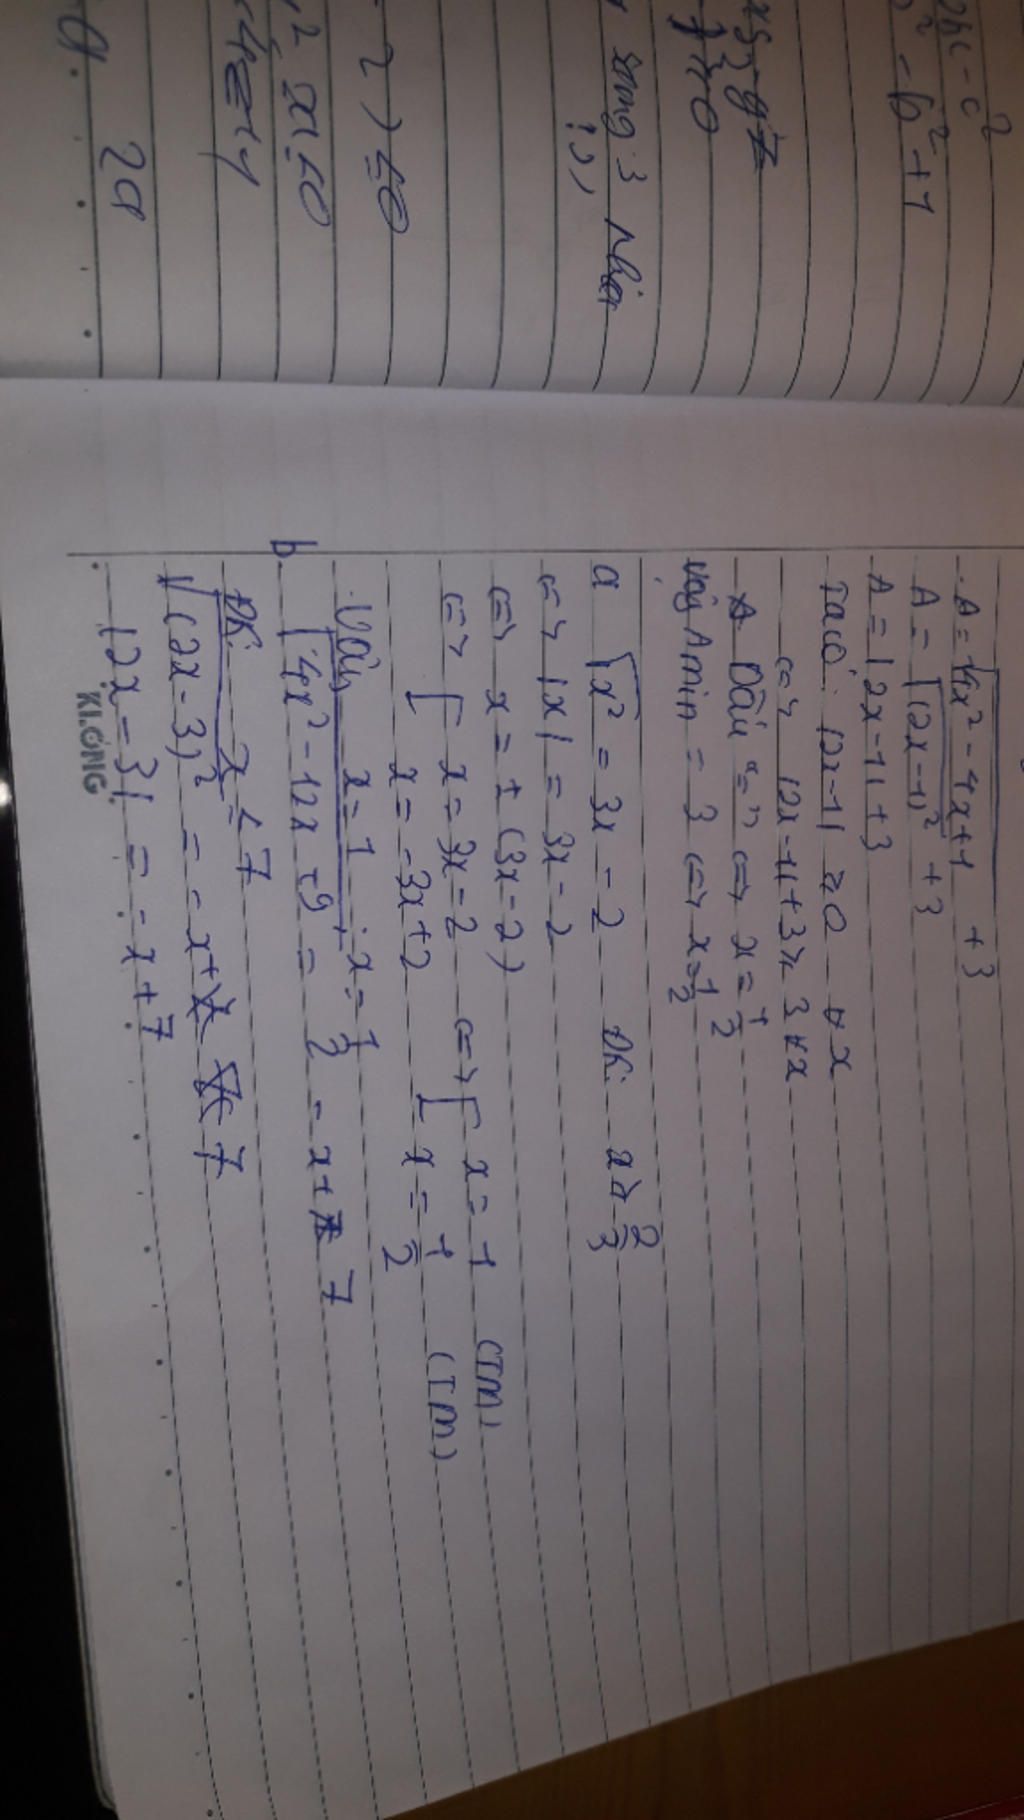 2bc - c²
b² - b² + 1
xyz - yz
≥ 0
song 3 nhân
2) ≤ 0
x ≤ 0
a. 2a
A = √4x² - 4x + 1 + 3
A = √(2x - 1)² + 3
A = |2x - 1| + 3
Ta có: |2x - 1| ≥ 0 ∀x
<=> |2x - 1| + 3 ≥ 3 ∀x
Dấu "=" <=> x = 1/2
Vậy A min = 3 <=> x = 1/2
a √x² = 3x - 2 ĐK: x ≥ 2/3
<=> |x| = 3x - 2
<=> x = ± (3x - 2)
<=> [ x = 3x - 2 <=> [ x = 1 (TM)
[ x = -3x + 2 [ x = 1/2 (TM)
Vậy x = 1, x = 1/2
b. √4x² - 12x + 9 = - x + 7
ĐK: x ≤ 7
√(2x - 3)² = - x + 7
|2x - 3| = - x + 7
KLONG